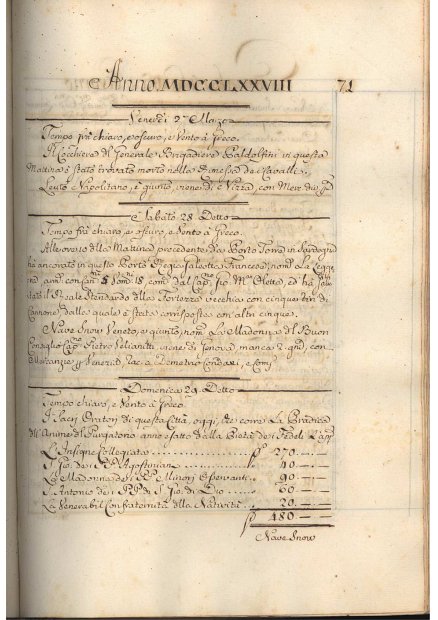 Anno MDCCLXXVIII 71
Venerdì 27 Marzo
Tempo frà chiaro, e oscuro, e Vento à Greco.
Il Cocchiere di Generale Brigadiere Baldolfini in questa
Mattina è stato trovato morto nella Rimessa de Cavalli
Leuto Napolitano, è giunto, viene di Nizza, con Mer:
Sabato 28 Detto
Tempo frà chiaro, e oscuro, e Vento à Greco.
della Mattina precedente, da Porto Torre in Sardegna
hà ancorato in questo Porto Regia Galeotta Francese, nom:
con 5 18 com: dal
tato il Reale Stendardo della Fortezza Vecchia con cinque tiri di
Cannone, dalla quale è stata corrisposta con altri cinque.
Nave Snow Veneto, è giunto, nom: La Madonna del Buon
Consiglio Pietro viene di Genova, manca 2 con
Mercanzie, Demetrio
Domenica 29 Detto
Tempo chiaro, e Vento à Greco.
I Sacri Oratori di questa Città, oggi, corre La Predica
dell'Anime del Purgatorio anno fatto dalla Pietà dei Fedeli
L'Insigne Collegiata 270
S. Gio: dei Agostiniani 40
La Madonna dei Minori Osservanti 90
S. Antonio dei di S. Gio: di Dio 60
La Venerabil Confraternita della Natività 20
480
Nave Snow